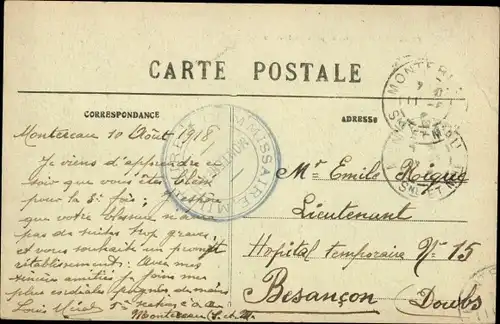 CARTE POSTALE
CORRESPONDANCE
ADRESSE
Montereau 10 Août 1918
Je viens d'apprendre ce
soir que vous êtes blessé
pour la 3e fois; j'espère
que votre blessure n'aura
pas de suites trop graves
et vous souhaite un prompt
rétablissement. Avec mes
sincères amitiés je joins mes
plus cordiales poignées de mains
Louis
Montereau (S. et M.)
Mr Emile Roique
Lieutenant
Hopital temporaire No 15
Besançon
Doubs
COMMISSAIRE MILITAIRE
MONTEREAU
SNE ET MNE